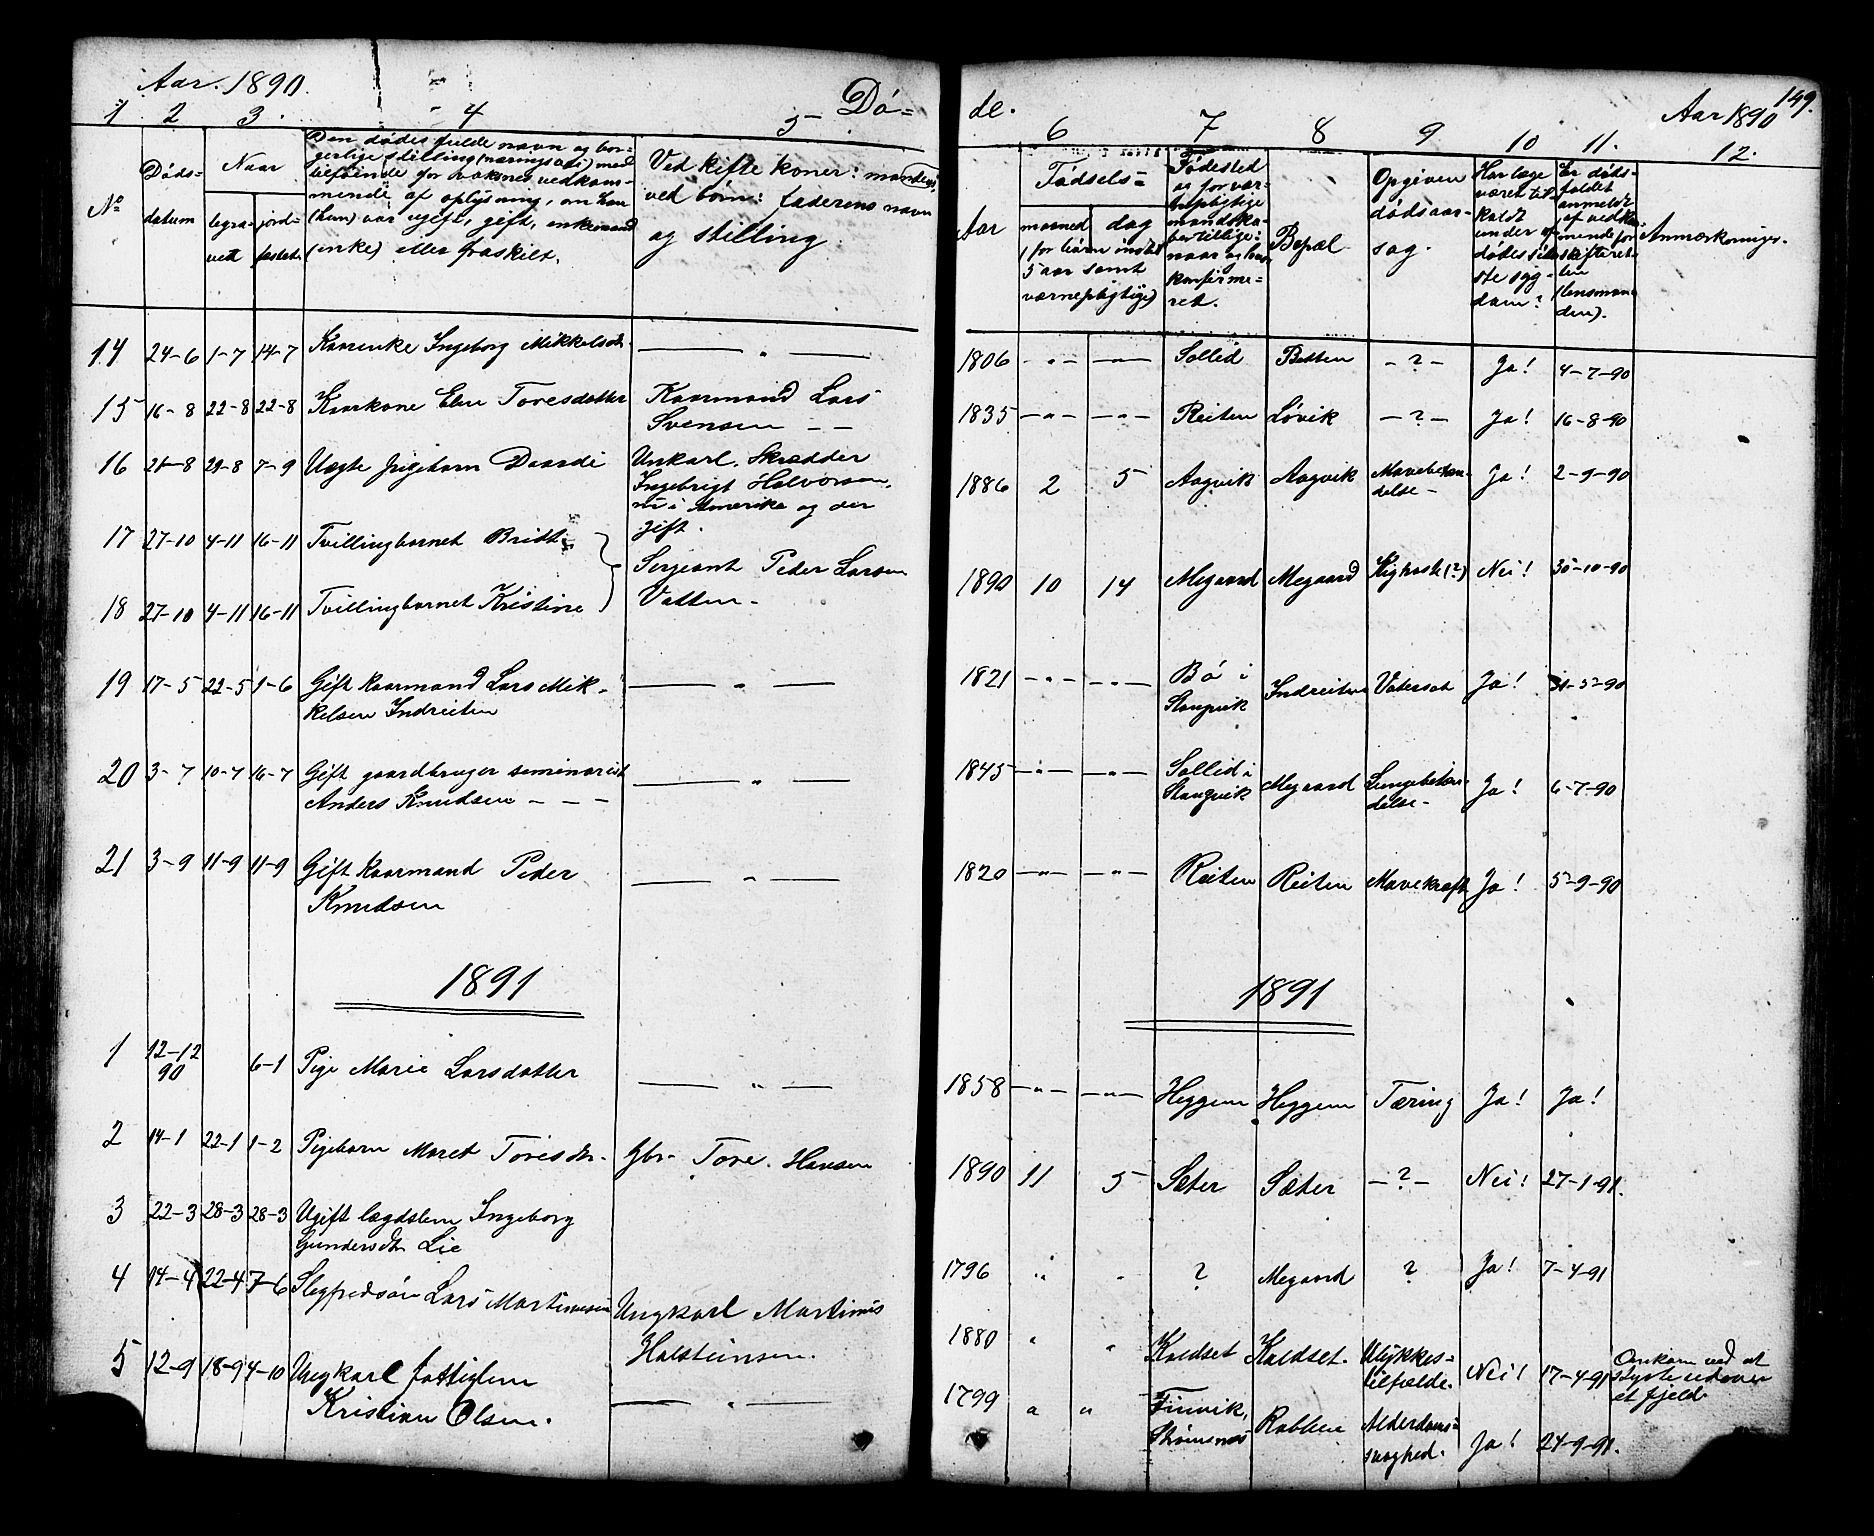 Aar 1890. Dø=
1 2 3. 4 5
No
Døds-
datum
Naar
begra-
vet
jord-
fæstet
Den dødes fulde navn og bor-
gerlige stilling (næringsvei) med
tilføiende for voksnes vedkom-
mende af oplysning, om han
(hun) var ugift, gift, enkemand
(enke) eller fraskilt.
Ved gifte koner: mandens
ved børn: faderens navn
og stilling
14 24-6 1-7 14-7 Kaarenke Ingeborg Mikkelsdtr. — " —
15 16-8 22-8 22-8 Kaarkone Eli Toresdatter Kaarmand Lars
Svensen — —
16 21-8 29-8 7-9 Uægte pigebarn Daardi Unkarl. Skrædder
Ingebrigt Halvorsen,
nu i Amerika og der
gift.
17 27-10 4-11 16-11 Tvillingbarnet Bridt
Sergeant Peder Larsen
18 27-10 4-11 16-11 Tvillingbarnet Kristine Vatten -
19 17-5 22-5 1-6 Gift kaarmand Lars Mik-
kelsen Indreiten — " —
20 3-7 10-7 16-7 Gift gaardbruger seminarist
Anders Knudsen - - - — " —
21 3-9 11-9 11-9 Gift kaarmand Peder
Knudsen — " —
1891
1 12-12
90 6-1 Pige Marie Larsdatter — " —
2 14-1 22-1 1-2 Pigebarn Maret Toresdtr. Gbr. Tore Hansen
3 22-3 28-3 28-3 Ugift lægdslem Ingeborg
Gundersdtr. Lie
4 14-4 22-4 7-6 Slegfredsøn Lars Martinusen Ungkarl Martinus
Halsteinsen.
5 12-9 18-9 4-10 Ungkarl fattiglem
Kristian Olsen. — " —
de. Aar 1890 149.
6 7 8 9 10 11. 12.
Fødsels=
Aar
maaned dag
(for børn indtil
5 aar samt
værnepligtige)
Fødested
og for vær-
nepligtige
mandska-
ber tillige:
naar og hvor
konfirme=
ret.
Bopæl
Opgiven
dødsaar-
sag.
Har læge
været til-
kaldt
under af-
dødes sid-
ste syg-
dom?
Er døds-
faldet
anmeldt
af vedkom-
mende for
skifteret-
ten
(lensman-
den).
Anmærkninger.
1806 -"- -"- Sollid Betten -?- Ja! 4-7-90
1835 -"- -"- Reiten Løvik -?- Ja! 16-8-90
1886 2 5 Aagvik Aagvik Mavebetæn-
delse - Ja! 2-9-90
1890 10 14 Megaard Megaard Kighoste (?) Nei! 30-10-90
1821 -"- -"- Bø i
Stangvik Indreiten Vatersot Ja! 31-5-90
1845 -"- -"- Sollid i
Stangvik Megaard Lungebetæn-
delse - Ja! 6-7-90
1820 -"- -"- Reiten Reiten Mavekræft Ja! 5-9-90
1891
1858 -"- -"- Heggem Heggem Tæring Ja! Ja!
1890 11 5 Sæter Sæter -?- Nei! 27-1-91.
1796 " " ? Megaard ? Ja! 7-4-91
1880 " " Koldset Koldset. Ulykkes-
tilfælde. Nei! 17-4-91 Omkom ved at
styrte udover
et fjeld
1799 " " Finvik,
Strømsnes Rabben Alderdoms=
svaghed. Ja! 24-9-91.